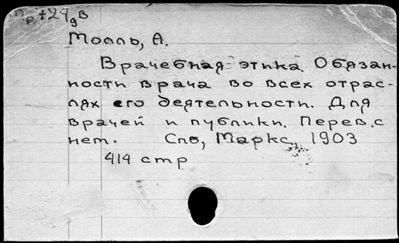 Молль, А.
Врачебная этика. Обязан-
ности врача во всех отрас-
лях его деятельности. Для
врачей и публики. Перев. с
нем. Спб, Маркс, 1903
414 стр